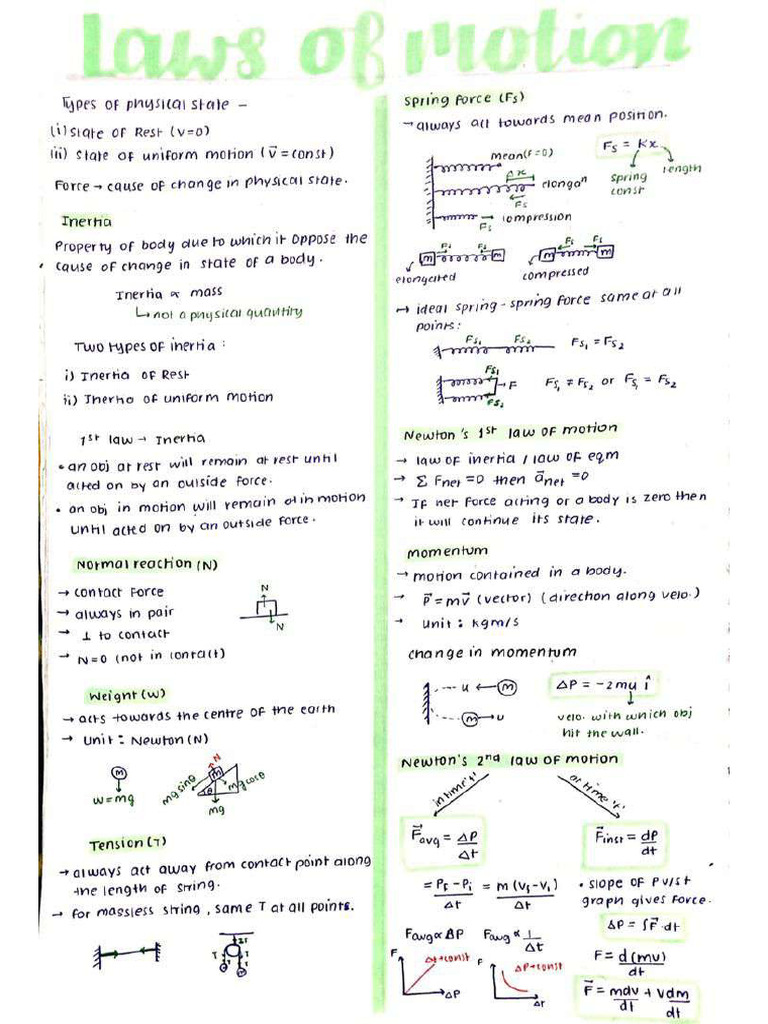 Laws of motion
Types of physical state –
(i) State of Rest (v=0)
(ii) State of uniform motion (v⃗ = const)
Force → cause of change in physical state.
Inertia
Property of body due to which it oppose the
cause of change in state of a body.
Inertia ∝ mass
↳ not a physical quantity
Two types of inertia :
i) Inertia of Rest
ii) Inertia of uniform motion
1st law → Inertia
• an obj at rest will remain at rest until
acted on by an outside force.
• an obj in motion will remain at in motion
until acted on by an outside force.
Normal reaction (N)
→ contact force
→ always in pair
→ ⊥ to contact
→ N=0 (not in contact)
N
N
Weight (W)
→ acts towards the centre of the earth
→ Unit : Newton (N)
m
w=mg
mg sinθ
N
m
θ
mg cosθ
mg
Tension (T)
→ always act away from contact point along
the length of string.
→ for massless string, same T at all points.
2T
T T
T T
Spring force (Fs)
→ always act towards mean position.
mean (F=0)
Δx
elongaⁿ
Fs
compression
Fs
Fs = Kx
spring
const
length
Fs Fs
m m
elongated
Fs Fs
m m
compressed
↦ ideal spring - spring force same at all
points :
Fs₁ Fs₂
Fs₁ = Fs₂
Fs₁
→ F
Fs₂
Fs₁ ≠ Fs₂ or Fs₁ = Fs₂
Newton's 1st law of motion
→ law of inertia / law of eqm
→ Σ Fnet = 0 then a⃗net = 0
→ If net force acting or a body is zero then
it will continue its state.
momentum
→ motion contained in a body.
→ P⃗ = mv⃗ (vector) (direction along velo.)
→ unit : kgm/s
change in momentum
u ← m
m → u
ΔP = -2mu î
velo. with which obj
hit the wall.
Newton's 2nd law of motion
in time 't'
at time 't'
F⃗avg = ΔP/Δt
= Pf - Pi/Δt = m (vf - vi)/Δt
Favg ∝ ΔP
Favg ∝ 1/Δt
F
Δt → const
ΔP
F
ΔP → const
Δt
F⃗inst = dP/dt
• slope of P v/s t
graph gives force.
ΔP = ∫F⃗·dt
F = d(mv)/dt
F⃗ = mdv/dt + vdm/dt